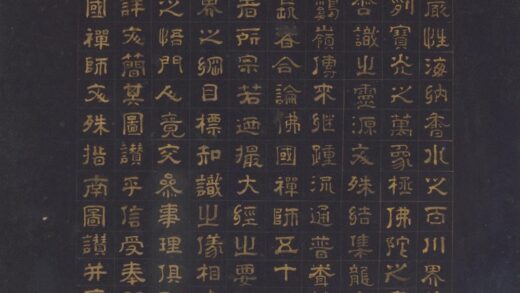 嚴性海納香水之百川界
剎寶光之萬象極佛陀之
識之靈源文殊結集龍
嶺傳來繼踵流通普
合論佛國禪師五十
者所宗若迺撮大經之要
界之綱目標知識之儀相
之悟門人竟交參事理俱
詳文簡其圖讚乎信受奉
國禪師文殊指南圖讚并